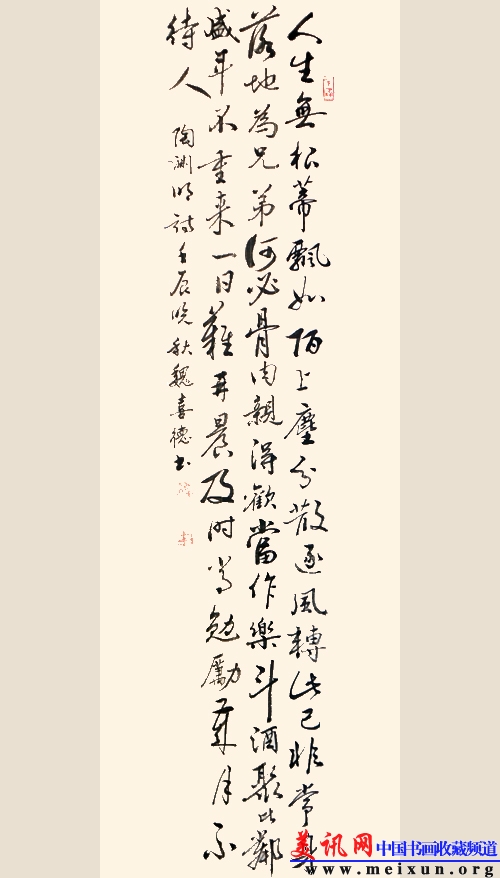 人生無根蒂飄如陌上塵分散逐風轉此已非常身
落地為兄弟何必骨肉親得歡當作樂斗酒聚比鄰
盛年不重来一日難再晨及时当勉勵歲月不
待人
陶渊明詩壬辰晚秋魏喜德书
美讯网 中国书画收藏频道
www.meixun.org